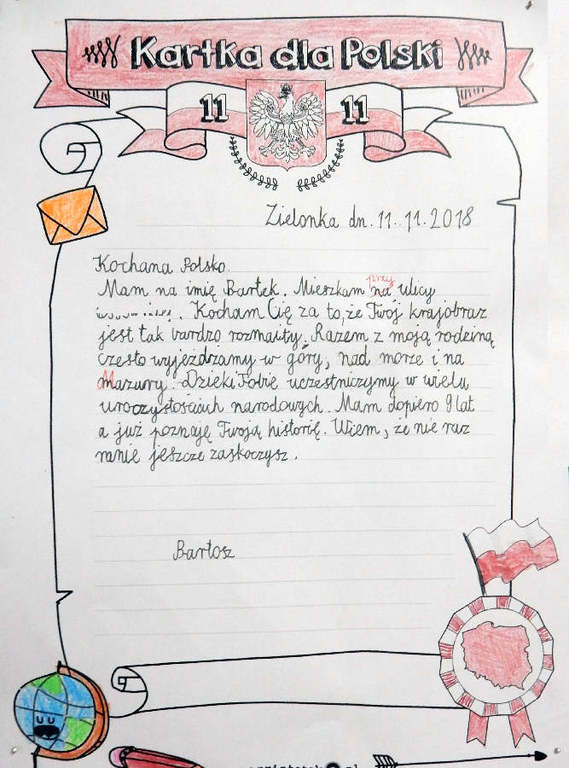 Kartka dla Polski
11 11
Zielonka dn. 11.11.2018
Kochana Polsko.
Mam na imię Bartek. Mieszkam przy na ulicy
. Kocham Cię za to, że Twój krajobraz
jest tak bardzo rozmaity. Razem z moją rodziną
często wyjeżdzamy w góry, nad morze i na
Mazury. Dzięki Tobie uczestniczymy w wielu
uroczystościach narodowych. Mam dopiero 9 lat
a już poznaję Twoją historię. Wiem, że nie raz
mnie jeszcze zaskoczysz.
Bartosz